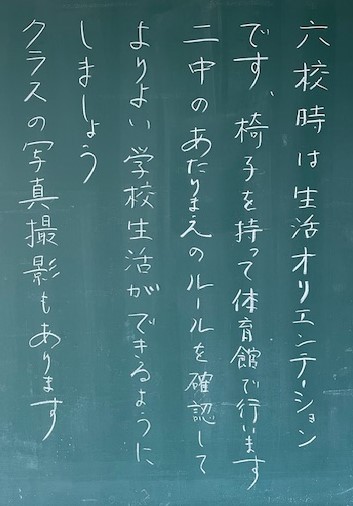 六校時は生活オリエンテーション
です、椅子を持って体育館で行います
二中のあたりまえのルールを確認して
よりよい学校生活ができるように
しましょう
クラスの写真撮影もあります